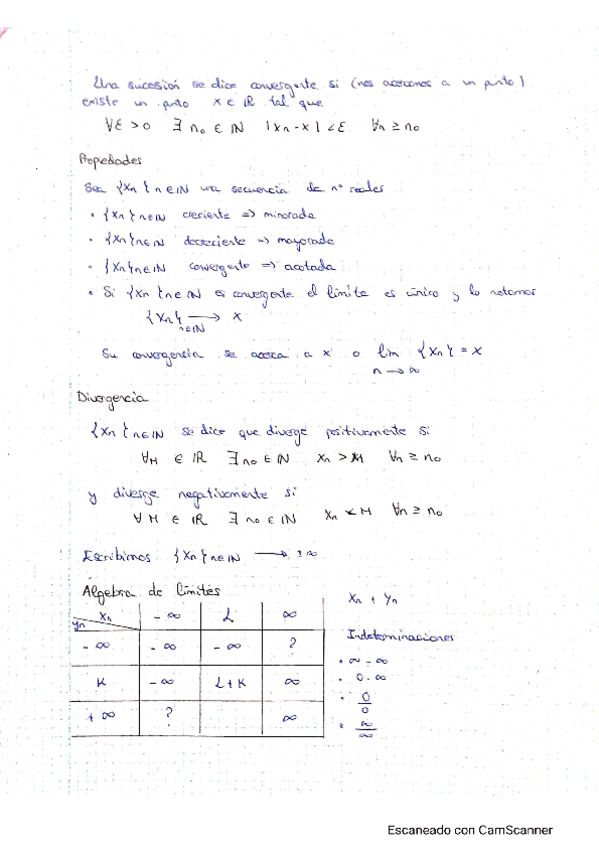 Una sucesión se dice convergente si (nos acercamos a un punto)
existe un punto x ∈ ℝ tal que
∀ε > 0 ∃ n₀ ∈ ℕ |xₙ - x| < ε ∀n ≥ n₀
Propiedades
Sea {xₙ}n∈ℕ una secuencia de nº reales
• {xₙ}n∈ℕ creciente => minorada
• {xₙ}n∈ℕ decreciente => mayorada
• {xₙ}n∈ℕ convergente => acotada
• Si {xₙ}n∈ℕ es convergente el límite es único y lo notamos
{xₙ}n∈ℕ → x
Su convergencia se acerca a x o lim {xₙ} = x
n → ∞
Divergencia
{xₙ}n∈ℕ se dice que diverge positivamente si
∀M ∈ ℝ ∃ n₀ ∈ ℕ xₙ > M ∀n ≥ n₀
y diverge negativamente si
∀ M ∈ ℝ ∃ n₀ ∈ ℕ xₙ < M ∀n ≥ n₀
Escribimos {xₙ}n∈ℕ → ±∞
Algebra de límites
xₙ + yₙ
yₙ xₙ - ∞ L ∞
- ∞ - ∞ - ∞ ?
K - ∞ L + K ∞
+ ∞ ? ∞
Indeterminaciones
• ∞ - ∞
• 0 · ∞
• 0/0
• ∞/∞
Escaneado con CamScanner